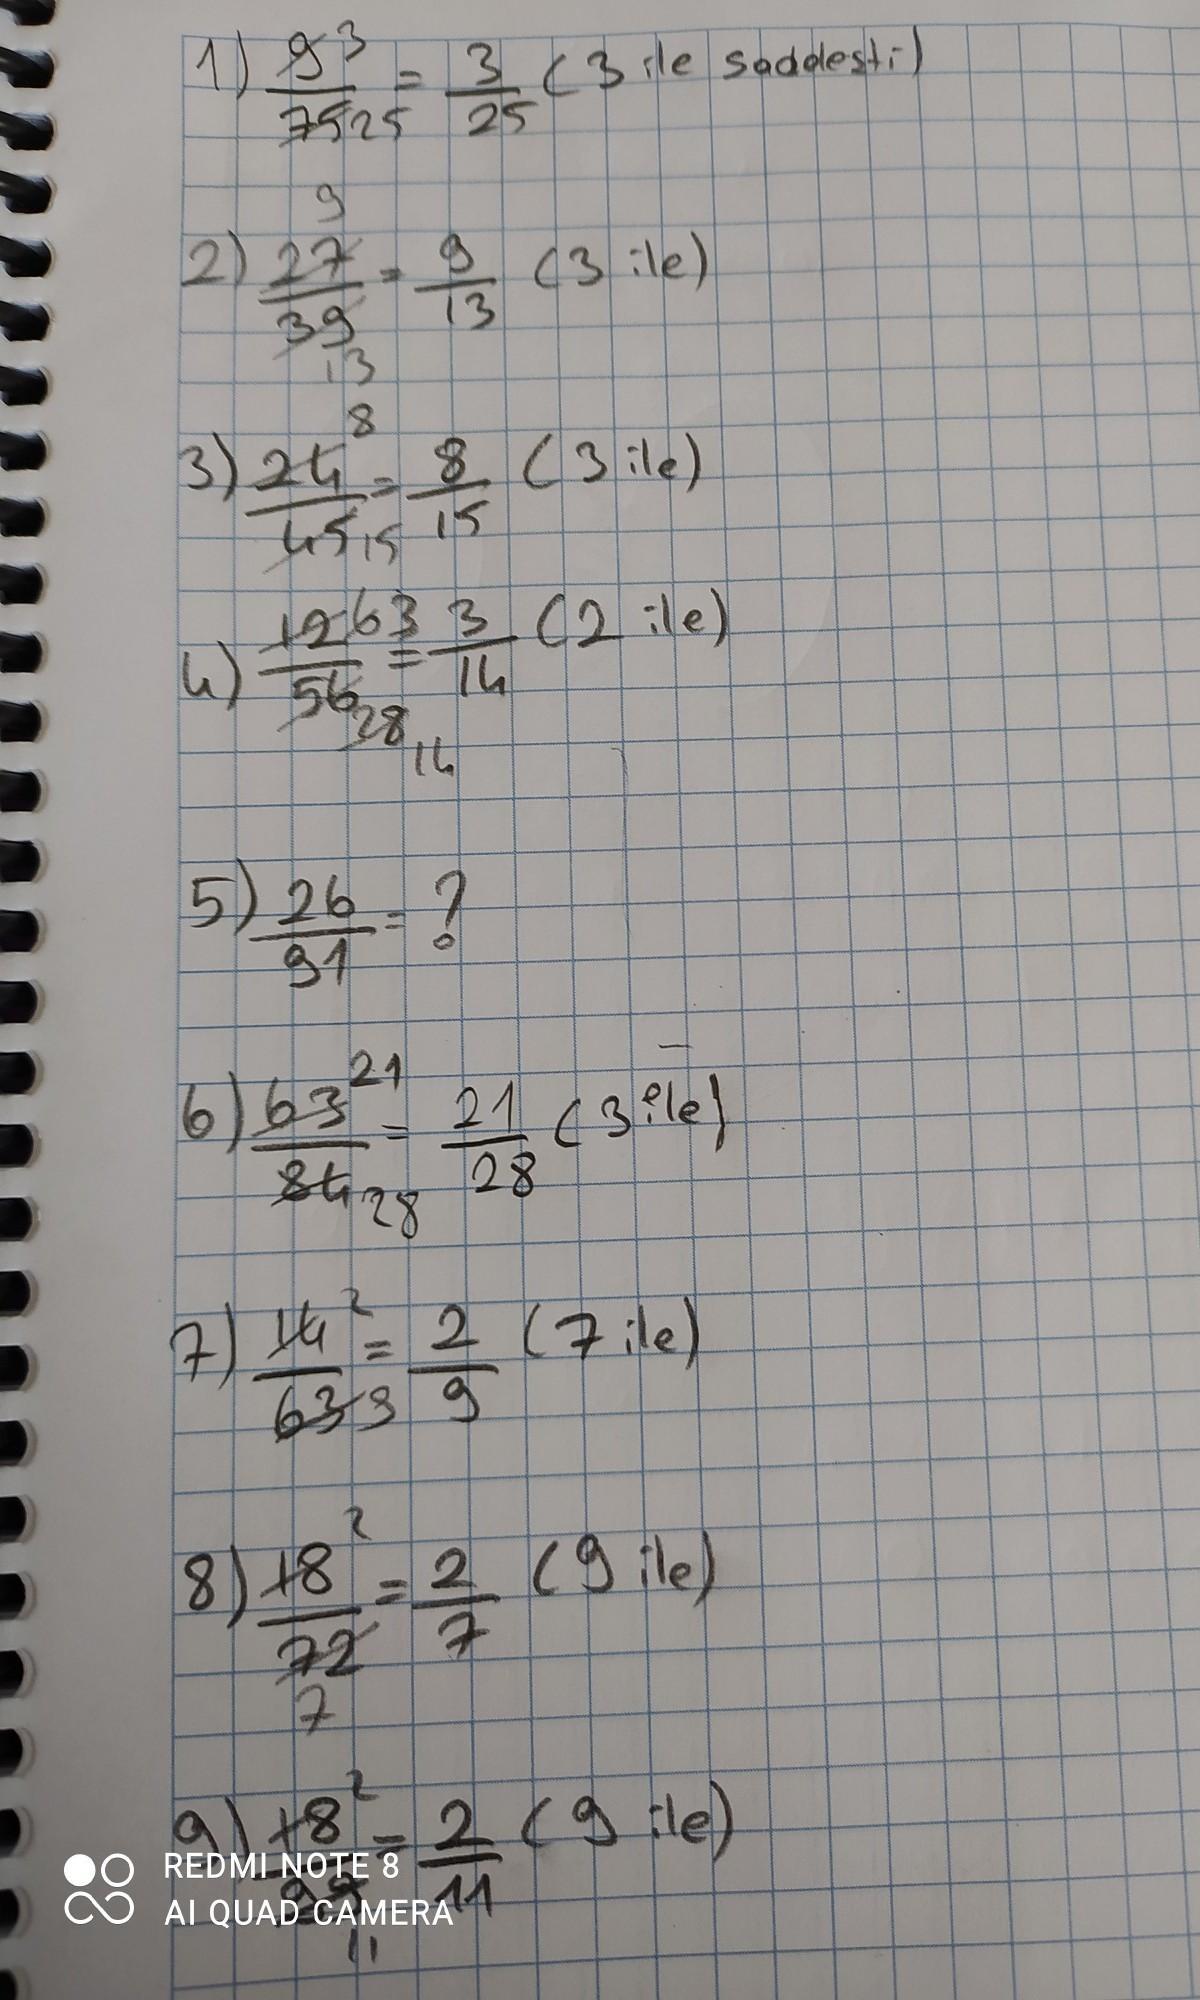 1) 9/75 3 25 = 3/25 (3 ile saddesti)
2) 27/39 9 13 = 9/13 (3 ile)
3) 24/45 8 15 = 8/15 (3 ile)
4) 12/56 6 3 28 14 = 3/14 (2 ile)
5) 26/91 = ?
6) 63/84 21 28 = 21/28 (3 ile)
7) 14/63 2 9 = 2/9 (7 ile)
8) 18/72 2 7 = 2/7 (9 ile)
9) 18/99 2 11 = 2/11 (9 ile)
REDMI NOTE 8
AI QUAD CAMERA